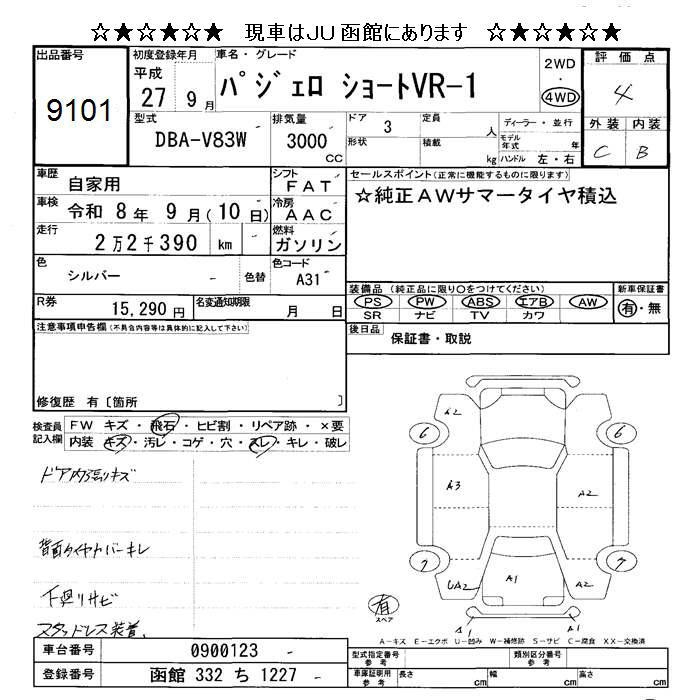 ☆★☆★☆★ 現車はＪＵ函館にあります ☆★☆★☆★
出品番号
9101
初度登録年月
平成
27 9月
車名・グレード
パジェロ ショートVR-1
2WD
・
4WD
評価点
4
外装 内装
C B
型式
DBA-V83W
排気量
3000
CC
ドア
3
定員
人
形状
積載
kg
ディーラー・並行
モデル
年式 年
ハンドル 左・右
車歴
自家用
シフト
FAT
車検
令和 8年 9月(10日)
冷房
AAC
走行
2万2千390 km
燃料
ガソリン
色
シルバー
色替
色コード
A31
R券
15,290円
名変通知期限
月 日
セールスポイント(正常に機能するものに限ります)
☆純正AWサマータイヤ積込
装備品 (純正品に限り○をつけてください)
PS PW ABS エアB AW
SR ナビ TV カワ
新車保証書
有・無
後日品
保証書・取説
注意事項申告欄(不具合内容等は具体的に記入して下さい)
修復歴 有〔箇所 〕
検査員
記入欄
FW キズ・飛石・ヒビ割・リペア跡・×要
内装 キズ・汚レ・コゲ・穴・スレ・キレ・破レ
ドア内張りキズ
背面タイヤカバーキレ
下廻りサビ
スタッドレス装着
A2
6 6
A3 A2
7 7
UA2 A1 A2
A1 A1
有
スペア
A-キズ E-エクボ U-凹み W-補修跡 S-サビ C-腐食 XX-交換済
車台番号
0900123
登録番号
函館 332 ち 1227
型式指定番号
参考
類別区分番号
参考
車庫証明用
参考
長さ cm
幅 cm
高さ cm